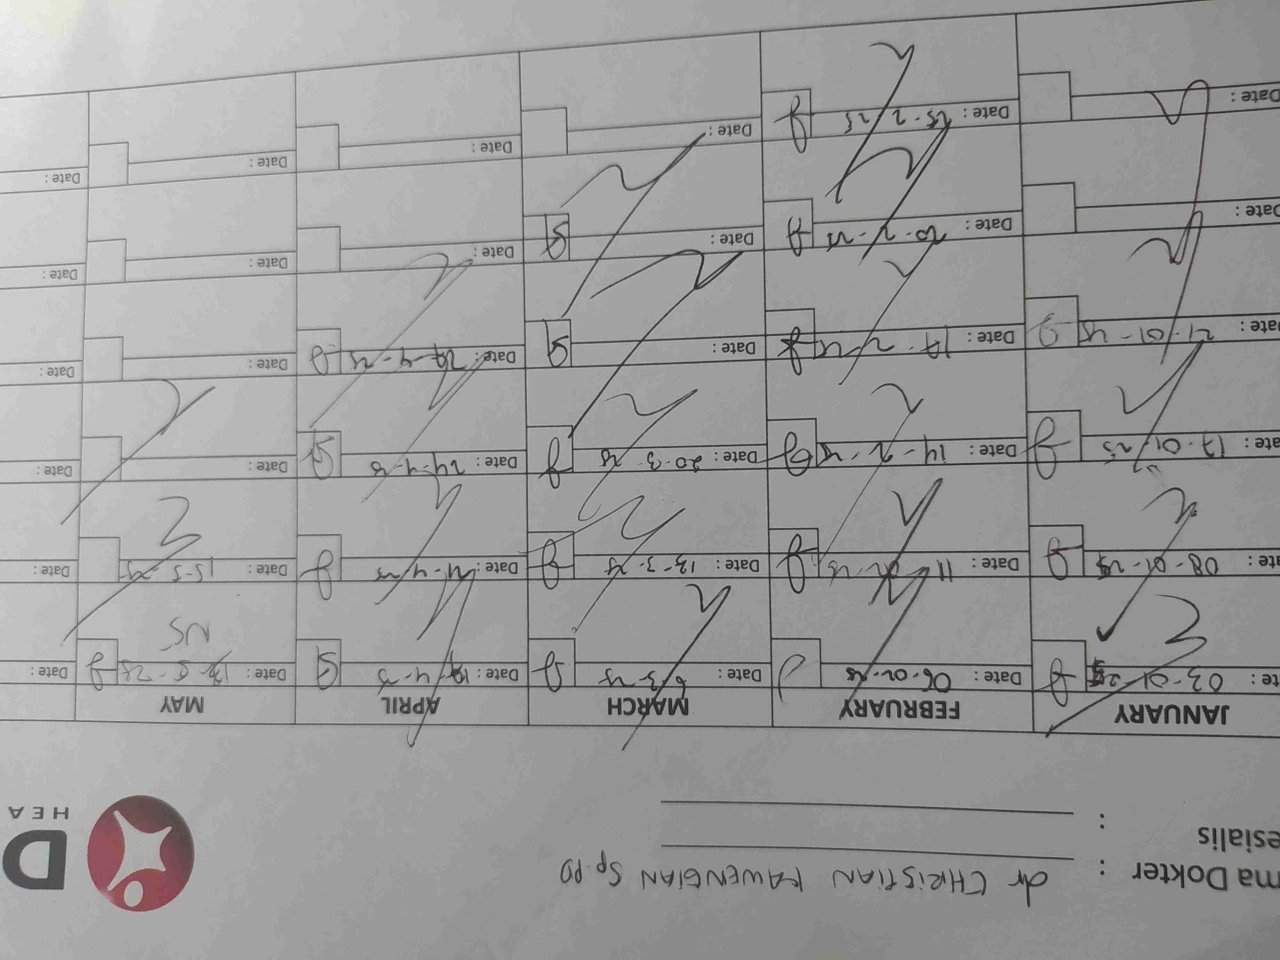 ma Dokter : dr CHRISTIAN KAWENGIAN Sp.PD
esialis :
D
HEA
JANUARY FEBRUARY MARCH APRIL MAY
te : 03-01-25 Date : 06-02-25 Date : 6-3-25 Date : Date : Date :
NS
ate : 08-01-25 Date : 11 Date : 13-3-25 Date : 21-4-25 Date : 15-5-25 Date :
ate : 17-01-25 Date : 14-2-25 Date : 20-3-25 Date : 24-4-25 Date : Date :
Date : 21-01-25 Date : 17-2-25 Date : Date : 29-4-25 Date : Date :
Date : Date : 20-2-25 Date : Date : Date : Date :
Date : Date : 25-2-25 Date : Date : Date : Date :